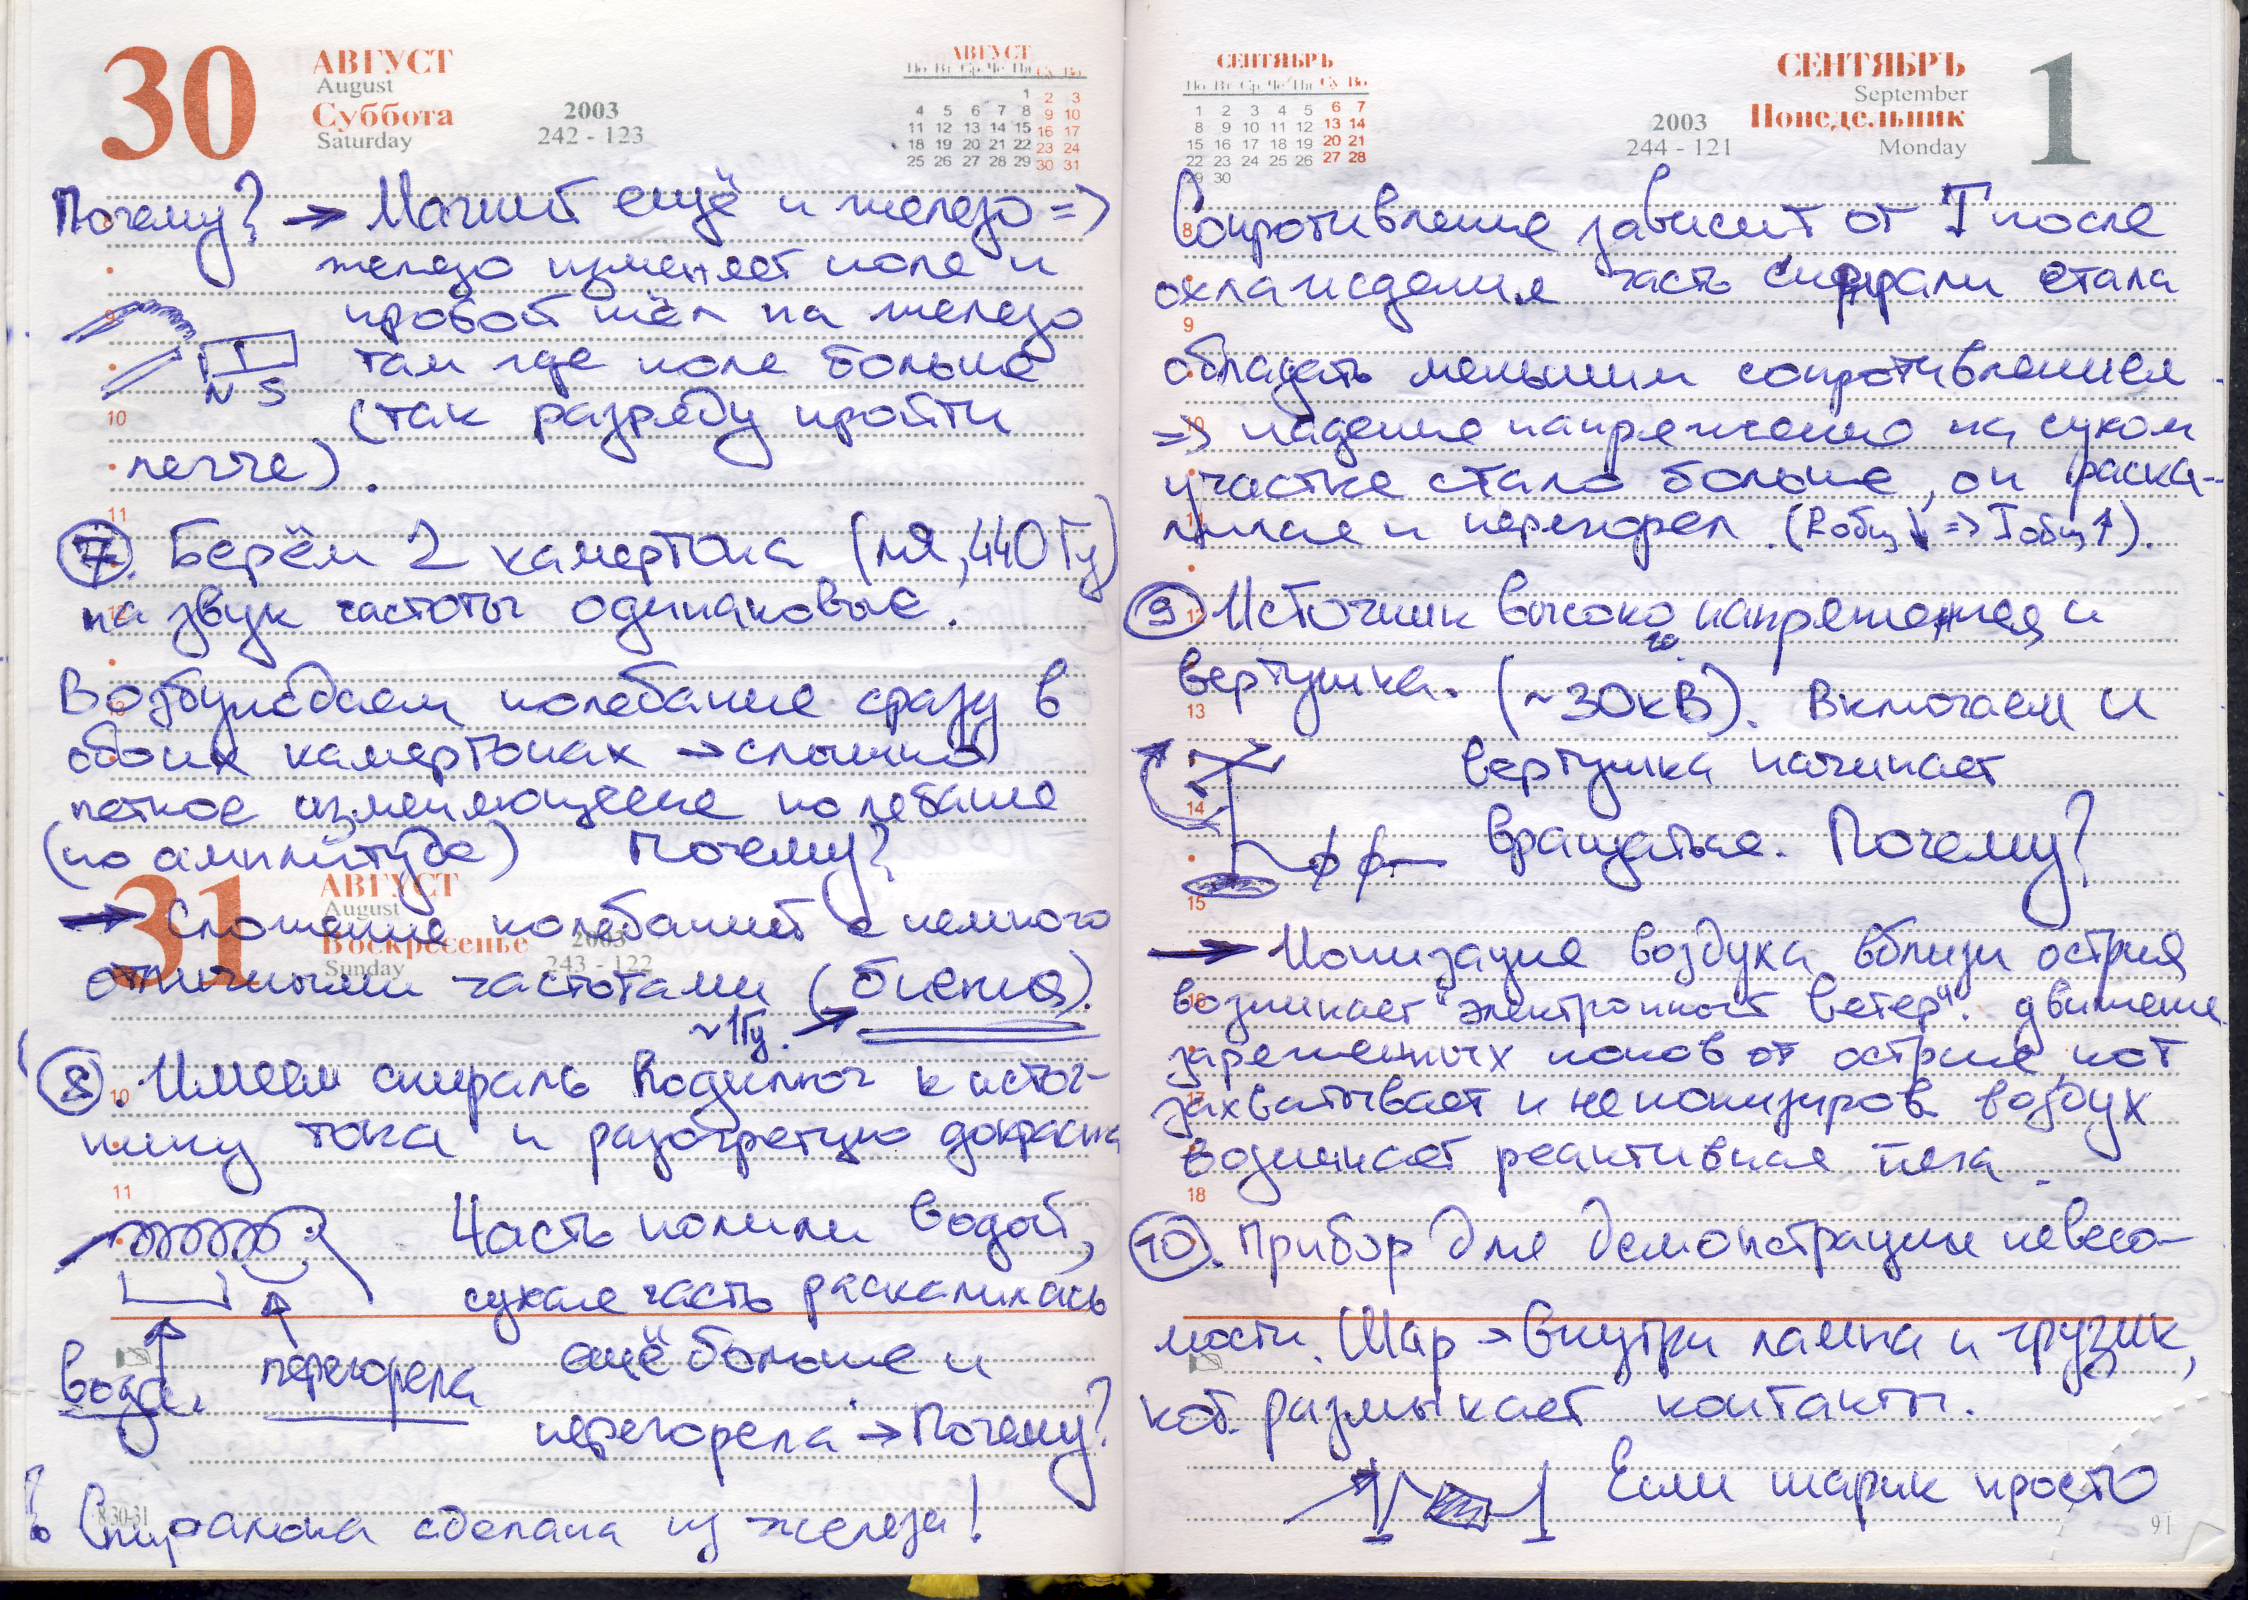 30 АВГУСТ
August
Суббота
Saturday
2003
242 - 123
АВГУСТ
По Вт Ср Че Пн Су Во
1 2 3
4 5 6 7 8 9 10
11 12 13 14 15 16 17
18 19 20 21 22 23 24
25 26 27 28 29 30 31
Почему? → Магнит ещё и железо =>
железо изменяет поле и
пробой шёл на железо
там где поле больше
N S
(так разряду пройти
легче).
7. Берём 2 камертона (ля, 440 Гц)
на звук частоты одинаковые.
Возбуждаем колебание сразу в
обоих камертонах → слышно
четкое изменяющееся колебание
(по амплитуде) Почему?
31 АВГУСТ
August
Воскресенье
Sunday
2003
243 - 122
→ Сложение колебаний с немного
отличными частотами (биения).
~1Гц.
8. Имеем спираль подключ к источ-
нику тока и разогретую докрасна
Часть полили водой,
сухая часть раскалилась
ещё больше и
вода. перегорела
перегорела → Почему?
Спиралька сделана из железа!
8 30-31
СЕНТЯБРЬ
По Вт Ср Че Пн Су Во
1 2 3 4 5 6 7
8 9 10 11 12 13 14
15 16 17 18 19 20 21
22 23 24 25 26 27 28
29 30
2003
244 - 121
СЕНТЯБРЬ
September
Понедельник
Monday
1
Сопротивление зависит от T после
охлаждения часть спирали стала
обладать меньшим сопротивлением
=> падение напряжение на сухом
участке стало больше, он раска-
лился и перегорел. (Rобщ↓ => Iобщ↑).
9 Источник высокого напряжения и
вертушка. (~30кВ). Включаем и
вертушка начинает
вращаться. Почему?
→ Ионизация воздуха вблизи острия
возникает "электронный ветер". движение
заряженных ионов от острия, кот
захватывает и неионизиров воздух
возникает реактивная тяга.
10. Прибор для демонстрации невесо-
мости. Шар → внутри лампа и грузик,
кот. размыкает контакты.
Если шарик просто
91